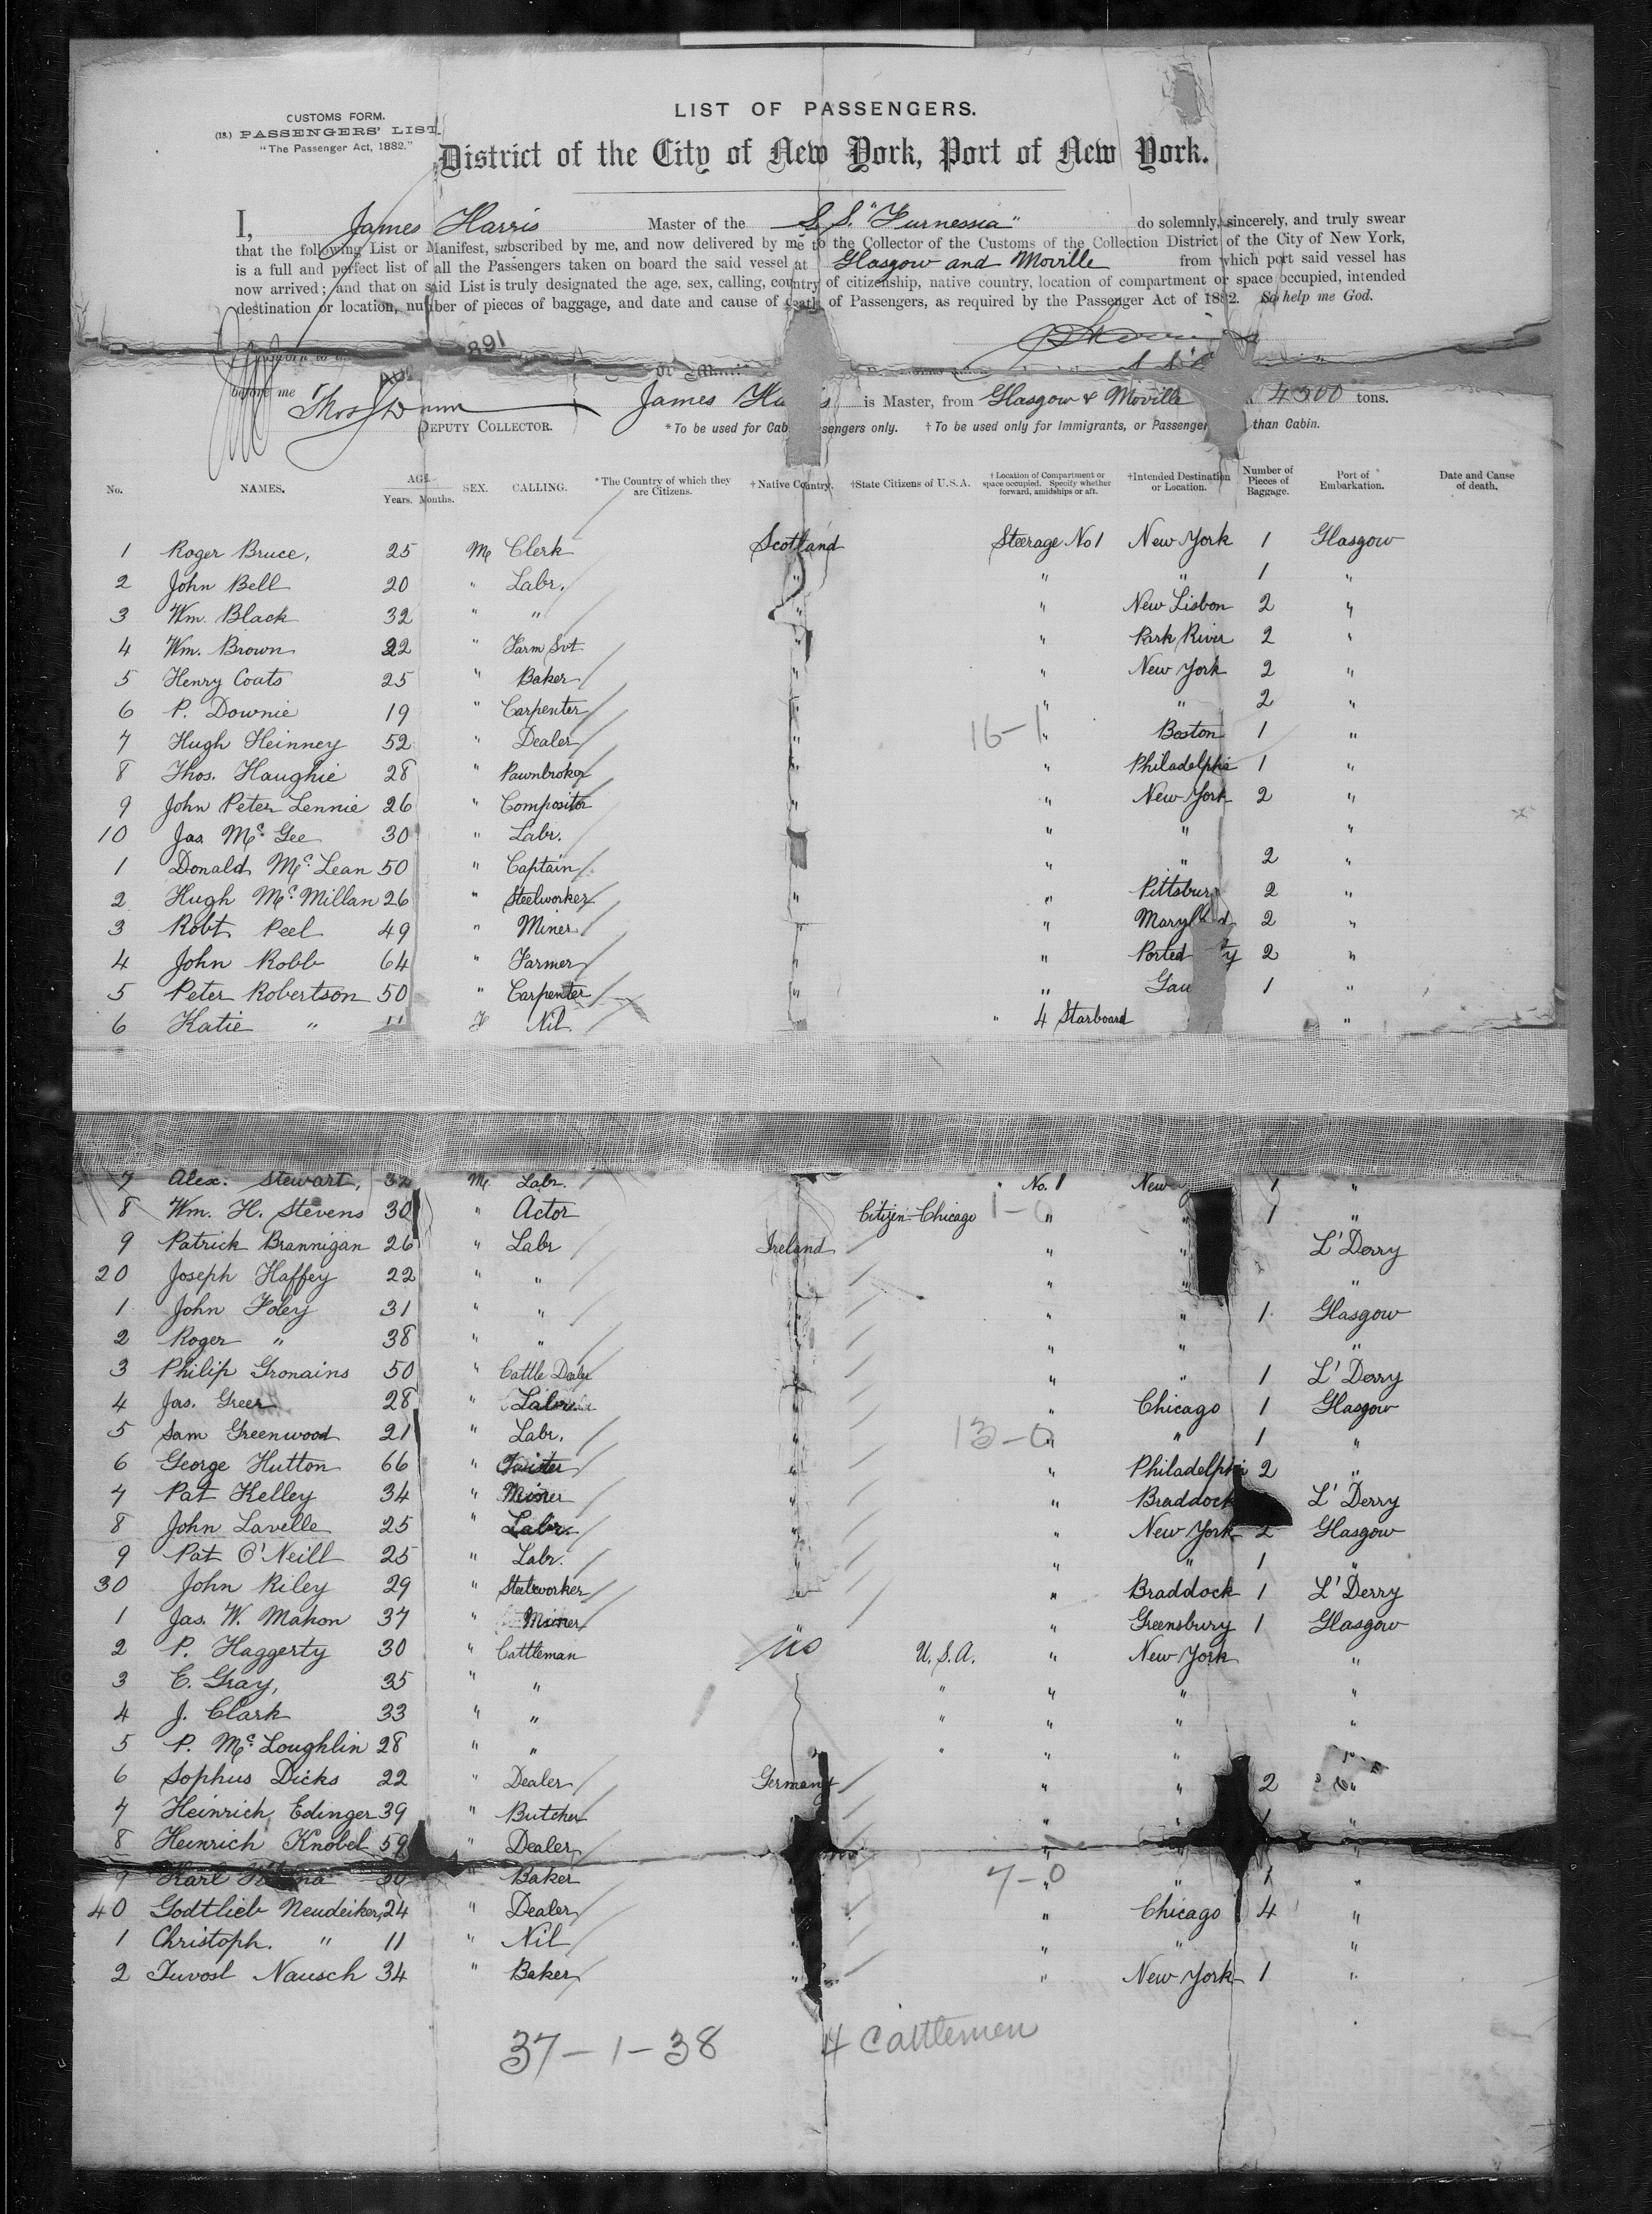 LIST OF PASSENGERS.
CUSTOMS FORM.
(18.) PASSENGERS' LIST.
"The Passenger Act, 1882."
District of the City of New York, Port of New York.
I, James Harris Master of the S.S. "Furnessia" do solemnly, sincerely, and truly swear
that the following List or Manifest, subscribed by me, and now delivered by me to the Collector of the Customs of the Collection District of the City of New York,
is a full and perfect list of all the Passengers taken on board the said vessel at Glasgow and Moville from which port said vessel has
now arrived; and that on said List is truly designated the age, sex, calling, country of citizenship, native country, location of compartment or space occupied, intended
destination or location, number of pieces of baggage, and date and cause of death, of Passengers, as required by the Passenger Act of 1882. So help me God.
891
before me Thos J Dunn James Harris is Master, from Glasgow & Moville 4500 tons.
DEPUTY COLLECTOR. *To be used for Cabin Passengers only. †To be used only for Immigrants, or Passengers than Cabin.
No. NAMES. AGE. Years. Months. SEX. CALLING. *The Country of which they are Citizens. †Native Country. †State Citizens of U.S.A. †Location of Compartment or space occupied. Specify whether forward, amidships or aft. †Intended Destination or Location. Number of Pieces of Baggage. Port of Embarkation. Date and Cause of death.
1 Roger Bruce, 25 M Clerk Scotland Steerage No 1 New York 1 Glasgow
2 John Bell 20 " Labr. " " " 1 "
3 Wm. Black 32 " " " " New Lisbon 2 "
4 Wm. Brown 22 " Farm Svt " " Park River 2 "
5 Henry Coats 25 " Baker " " New York 2 "
6 P. Downie 19 " Carpenter " " " 2 "
7 Hugh Heinney 52 " Dealer " 16-1 " Boston 1 "
8 Thos. Haughie 28 " Pawnbroker " " Philadelphia 1 "
9 John Peter Lennie 26 " Compositor " " New York 2 "
10 Jas. McGee 30 " Labr. " " "
1 Donald McLean 50 " Captain " " " 2 "
2 Hugh McMillan 26 " Steelworker " " Pittsburg 2 "
3 Robt. Peel 49 " Miner " " Maryland 2 "
4 John Robb 64 " Farmer " " Ported ty 2 "
5 Peter Robertson 50 " Carpenter " " Gau 1 "
6 Katie " 11 F Nil " " 4 Starboard "
7 Alex. Stewart, 32 M Labr. " No. 1 New 1 "
8 Wm. H. Stevens 30 " Actor Citizen-Chicago 1-0 " " 1 "
9 Patrick Brannigan 26 " Labr Ireland " " L'Derry
20 Joseph Haffey 22 " " " " " "
1 John Foley 31 " " " " " 1 Glasgow
2 Roger " 38 " " " " " "
3 Philip Gronains 50 " Cattle Dealer " " " 1 L'Derry
4 Jas. Greer 28 " Labr. " " Chicago 1 Glasgow
5 Sam Greenwood 21 " Labr. " 13-0 " " 1 "
6 George Hutton 66 " " " Philadelphia 2 "
7 Pat Kelley 34 " Miner " " Braddock L'Derry
8 John Lavelle 25 " Labr. " " New York 2 Glasgow
9 Pat O'Neill 25 " Labr. " " " 1 "
30 John Riley 29 " Steelworker " " Braddock 1 L'Derry
1 Jas. W. Mahon 37 " Miner " " Greensbury 1 Glasgow
2 P. Haggerty 30 " Cattleman US U.S.A. " New York "
3 E. Gray, 35 " " " " " "
4 J. Clark 33 " " " " " "
5 P. McLoughlin 28 " " " " "
6 Sophus Dicks 22 " Dealer Germany " " 2 "
7 Heinrich Edinger 39 " Butcher " " 1 "
8 Heinrich Knobel 59 " Dealer " " "
9 Karl 30 Baker 7-0 " " 1 "
40 Godtlieb Neudeiker, 24 " Dealer " Chicago 4 "
1 Christoph. " 11 " Nil " " " "
2 Nausch 34 " Baker " " New York 1 "
37-1-38 4 Cattlemen